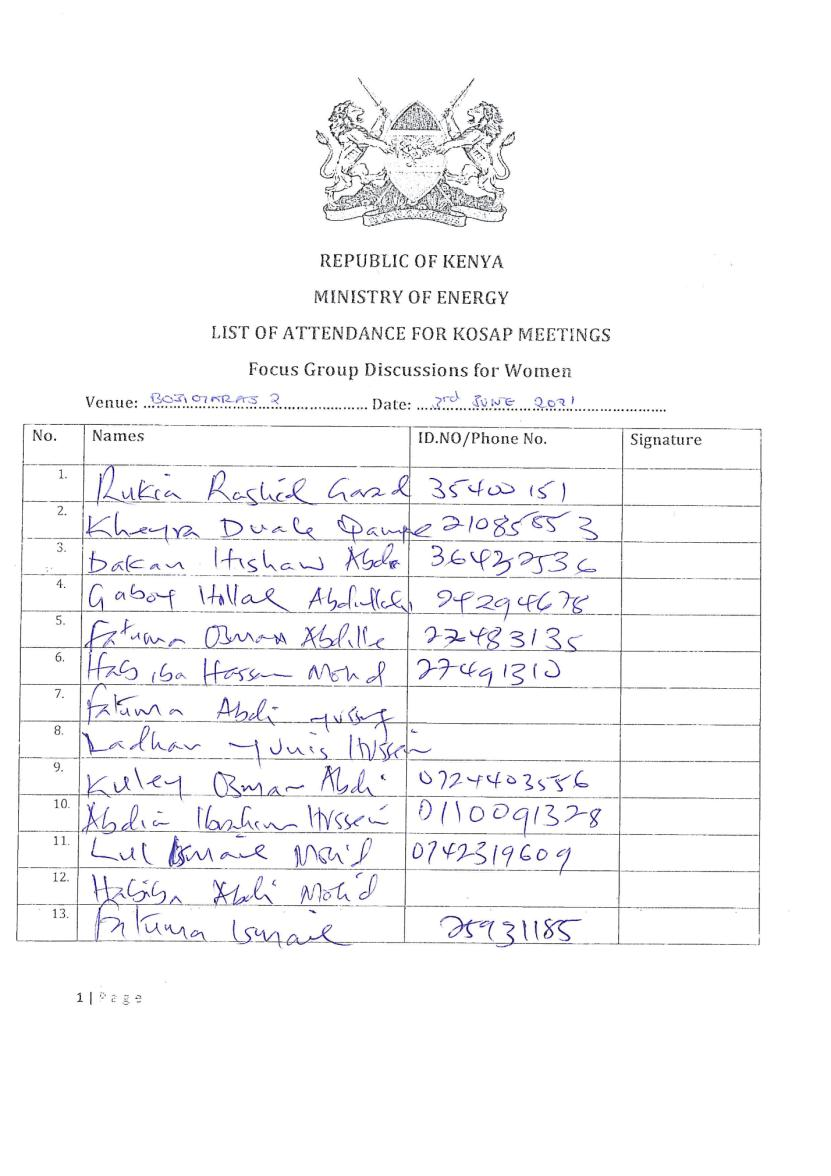 REPUBLIC OF KENYA
MINISTRY OF ENERGY
LIST OF ATTENDANCE FOR KOSAP MEETINGS
Focus Group Discussions for Women
Venue: Date: 3rd JUNE 2021
No. Names ID.NO/Phone No. Signature
1. Rukia Rashid 35400151
2. Kheyra Duale 21085553
3. Dakan Hishaw Abdi 36432536
4. Gaboy Hillal Abdullahi 24294678
5. Fatuma Osman Abdille 22483135
6. Habiba Hassan Moh'd 27491310
7. Fatuma Abdi Yusuf
8. Ladhan Yunis Hussein
9. Kuley Osman Abdi 0724403556
10. Abdia Ibrahim Hussein 0110091328
11. Lul Ismail Moh'd 0742319609
12. Habiba Abdi Moh'd
13. Fatuma Ismail 25931185
1 | Page